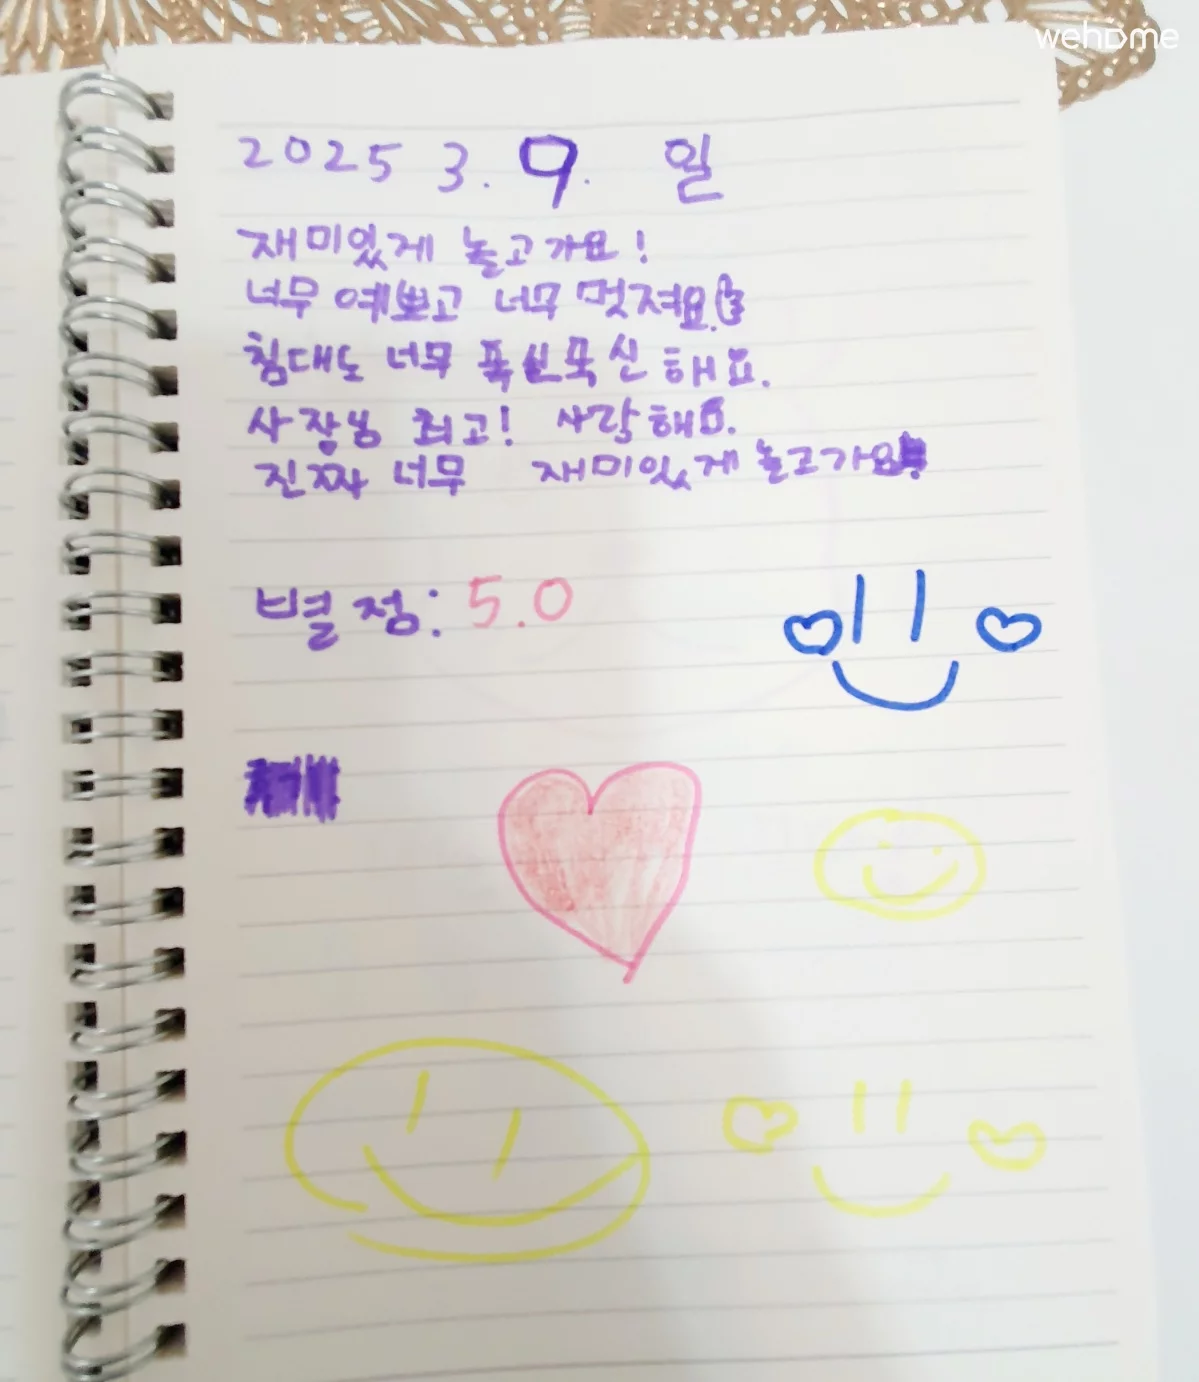 wehome
2025 3. 9. 일
재미있게 놀고가요!
너무 예쁘고 너무 멋져요.
침대도 너무 푹신푹신해요.
사장님 최고! 사랑해요.
진짜 너무 재미있게 놀고가요!
별점: 5.0